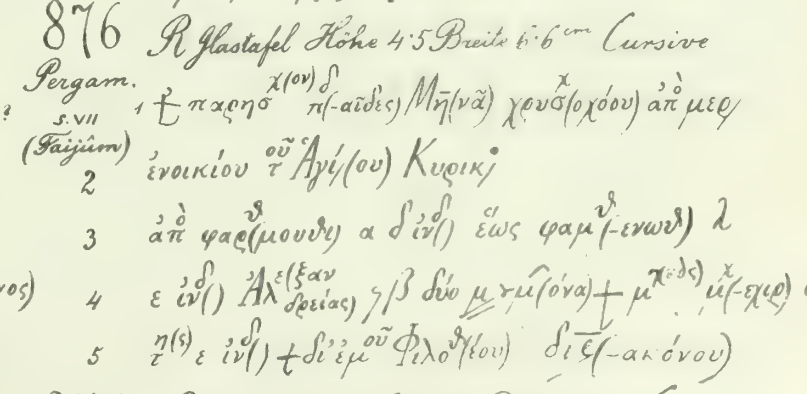 876 R Glastafel Höhe 4·5 Breite 6·6 cm Cursive
Pergam.
1 † παρησχ(ον) π(-αῖδες) Μη(νᾶ) χρυσ(οχόου) ἀπὸ μερ/
s. VII
(Faijûm)
2 ἐνοικίου τοῦ Ἁγί/(ου) Κυρικ/
3 ἀπὸ φαρ(μουθι) α δ ἰνδ() ἕως φαμ(-ενωθ) λ
νος) 4 ε ἰνδ() Ἀλε(ξανδρείας) β δύο μ νμ(όνα) † μ
5 τῆ(ς) ε ἰνδ() † δι' ἐμοῦ Φιλοθ(έου) (-ακόνου)